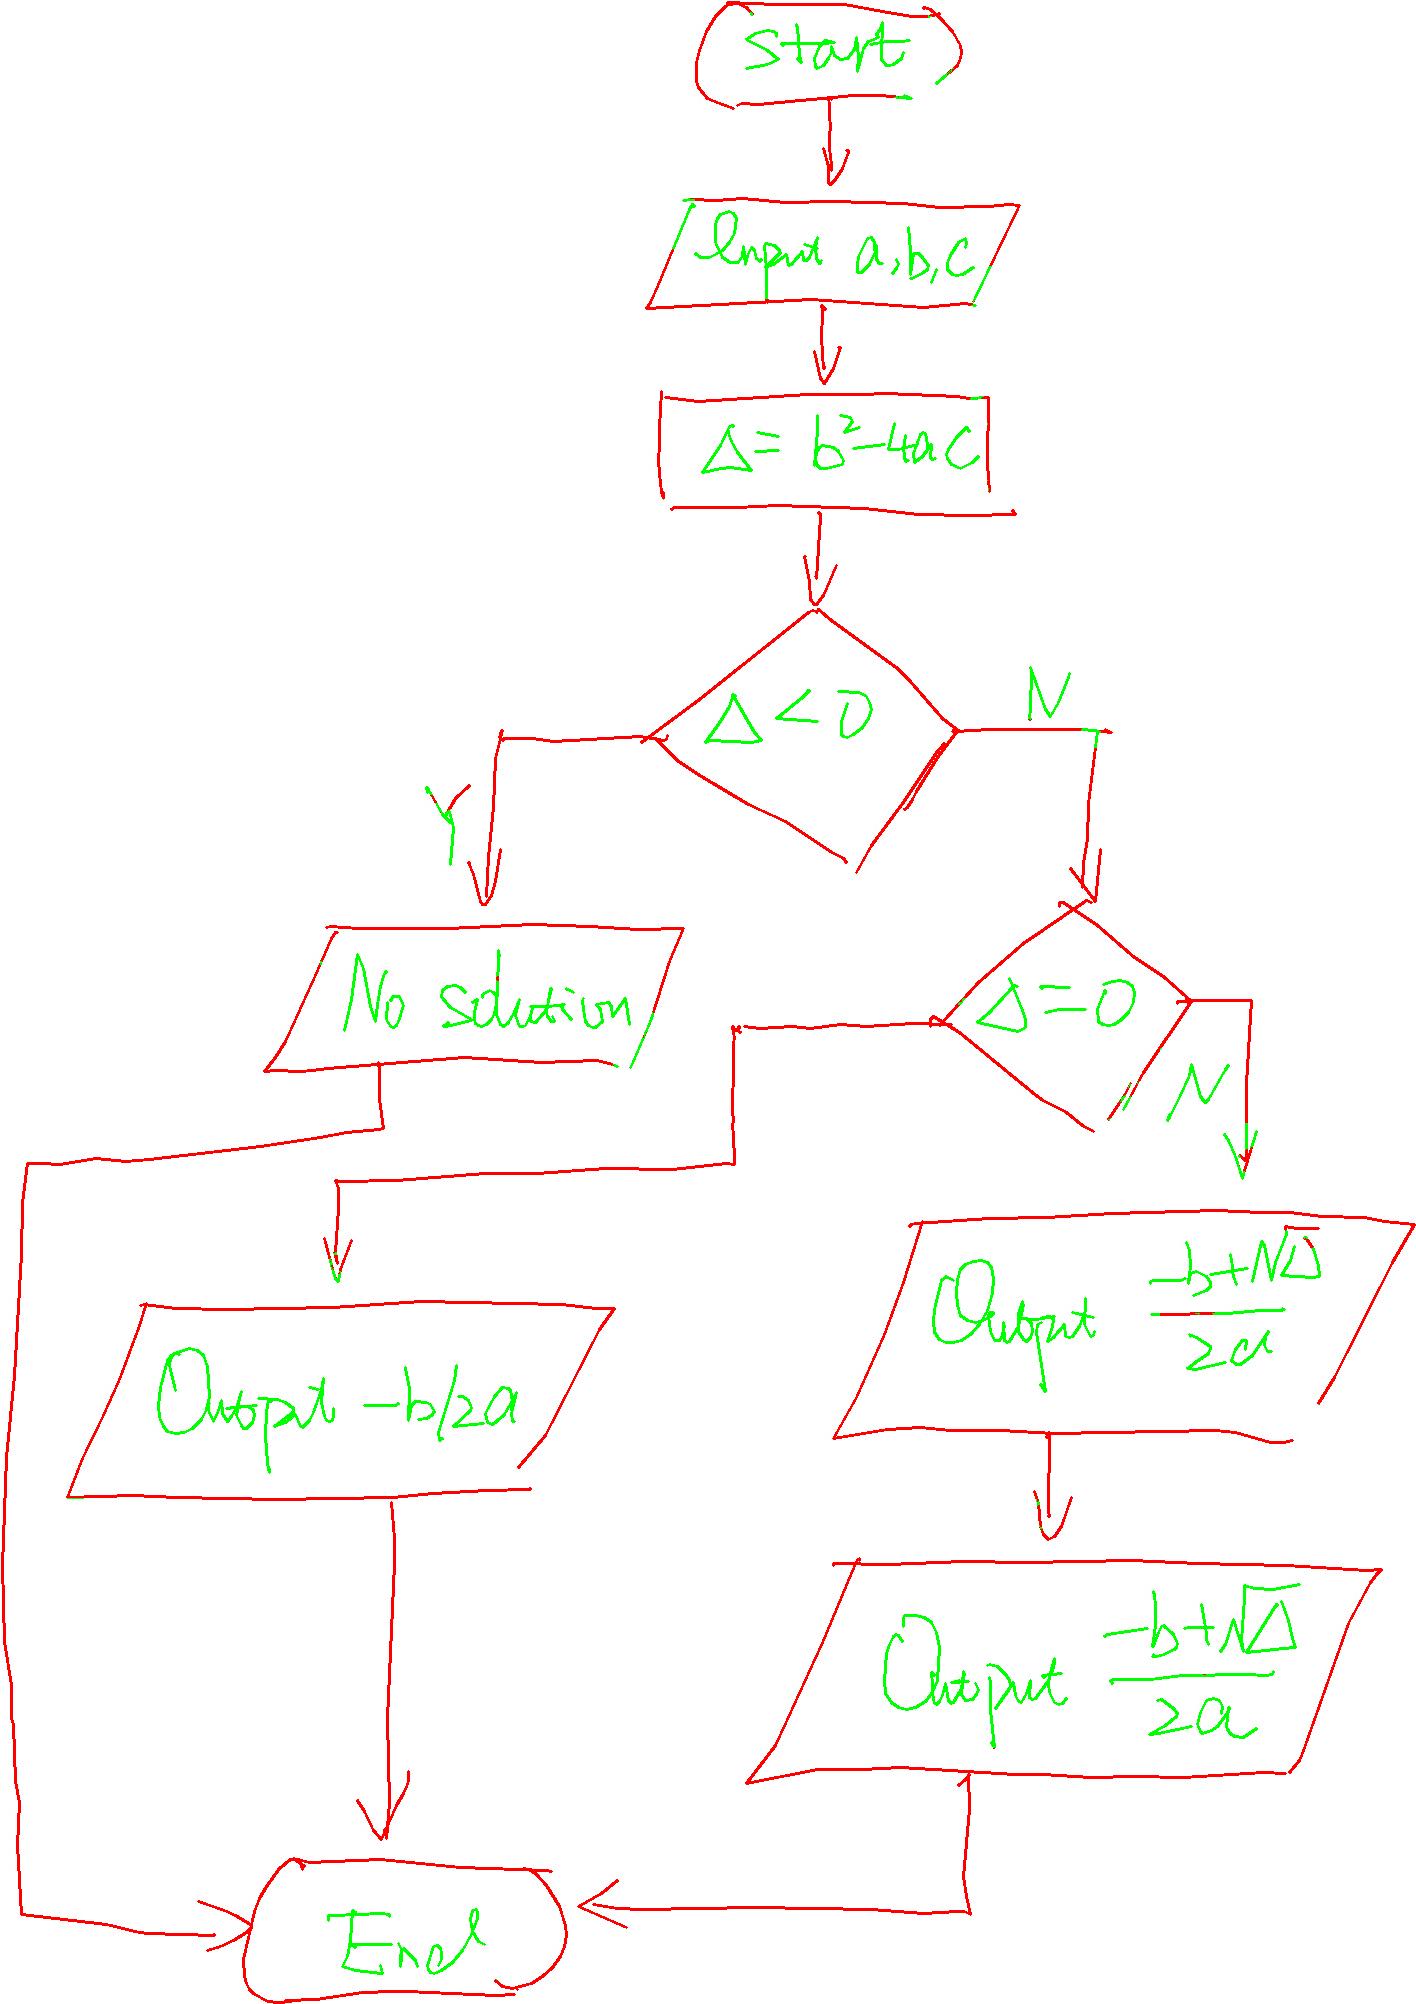 Start
Input a,b,c
Δ= b²-4ac
Δ<0
N
Y
No solution
Δ=0
N
Output (-b+√Δ)/2a
Output -b/2a
Output (-b+√Δ)/2a
End